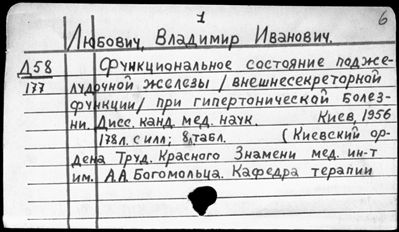 1
6
Любович, Владимир Иванович.
Д58 Функциональное состояние поджe-
177 лудочной железы /внешнесекреторной
функции/ при гипертонической болез-
ни. Дисс. канд. мед. наук. Киев, 1956
178л. с илл; 8 табл. (Киевский ор-
дена Труд. Красного Знамени мед. ин-т
им. А.А. Богомольца. Кафедра терапии